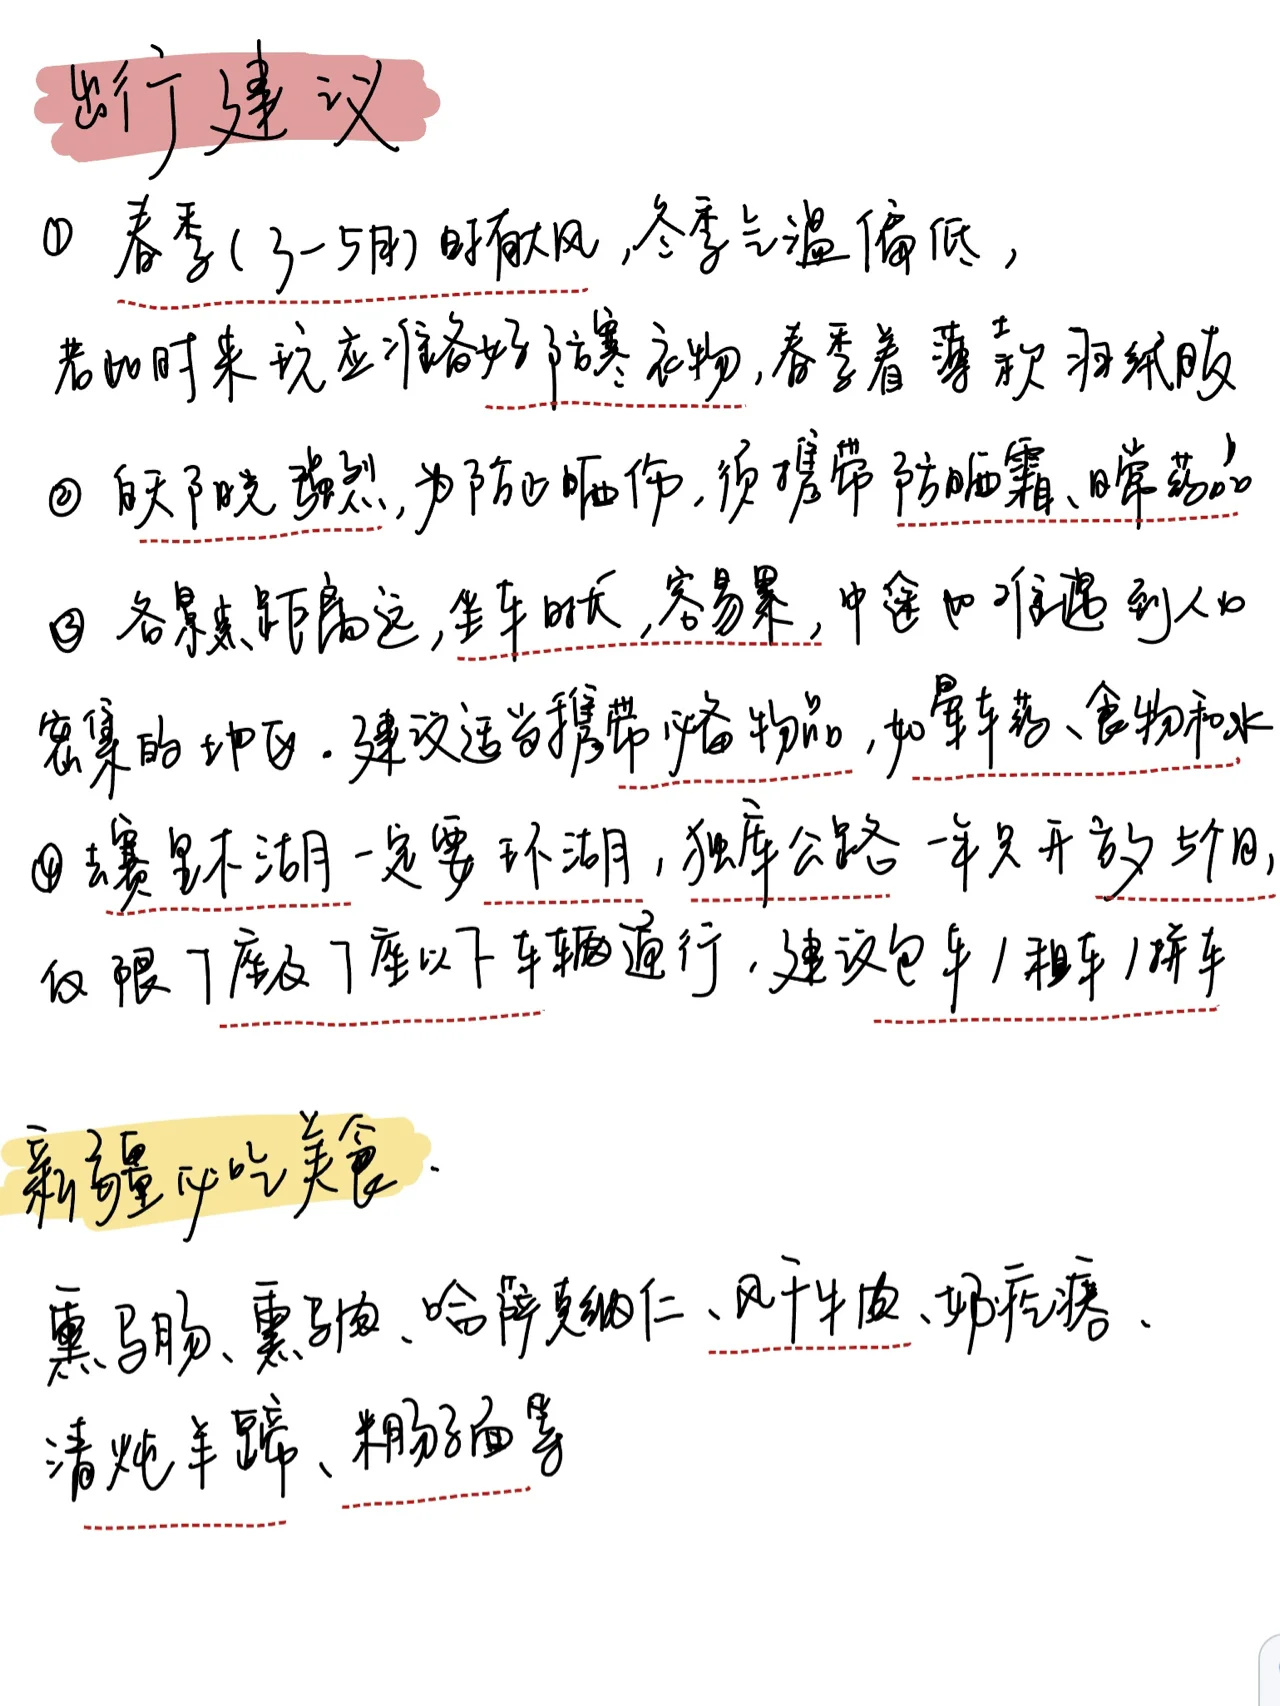 出行建议
① 春季(3-5月)时有大风,冬季气温偏低,
若此时来玩应准备好防寒衣物,春季着薄款羽绒服
② 白天阳光强烈,为防止晒伤,须携带防晒霜、日常药品
③ 各景点距离远,坐车时长,容易累,中途也难遇到人口
密集的地区.建议适当携带必备物品,如晕车药、食物和水
④ 去赛里木湖一定要环湖,独库公路一年只开放5个月,
仅限7座及7座以下车辆通行,建议包车/租车/拼车
新疆必吃美食.
熏马肠、熏马肉、哈萨克纳仁、风干牛肉、奶疙瘩、
清炖羊蹄、米肠子面等